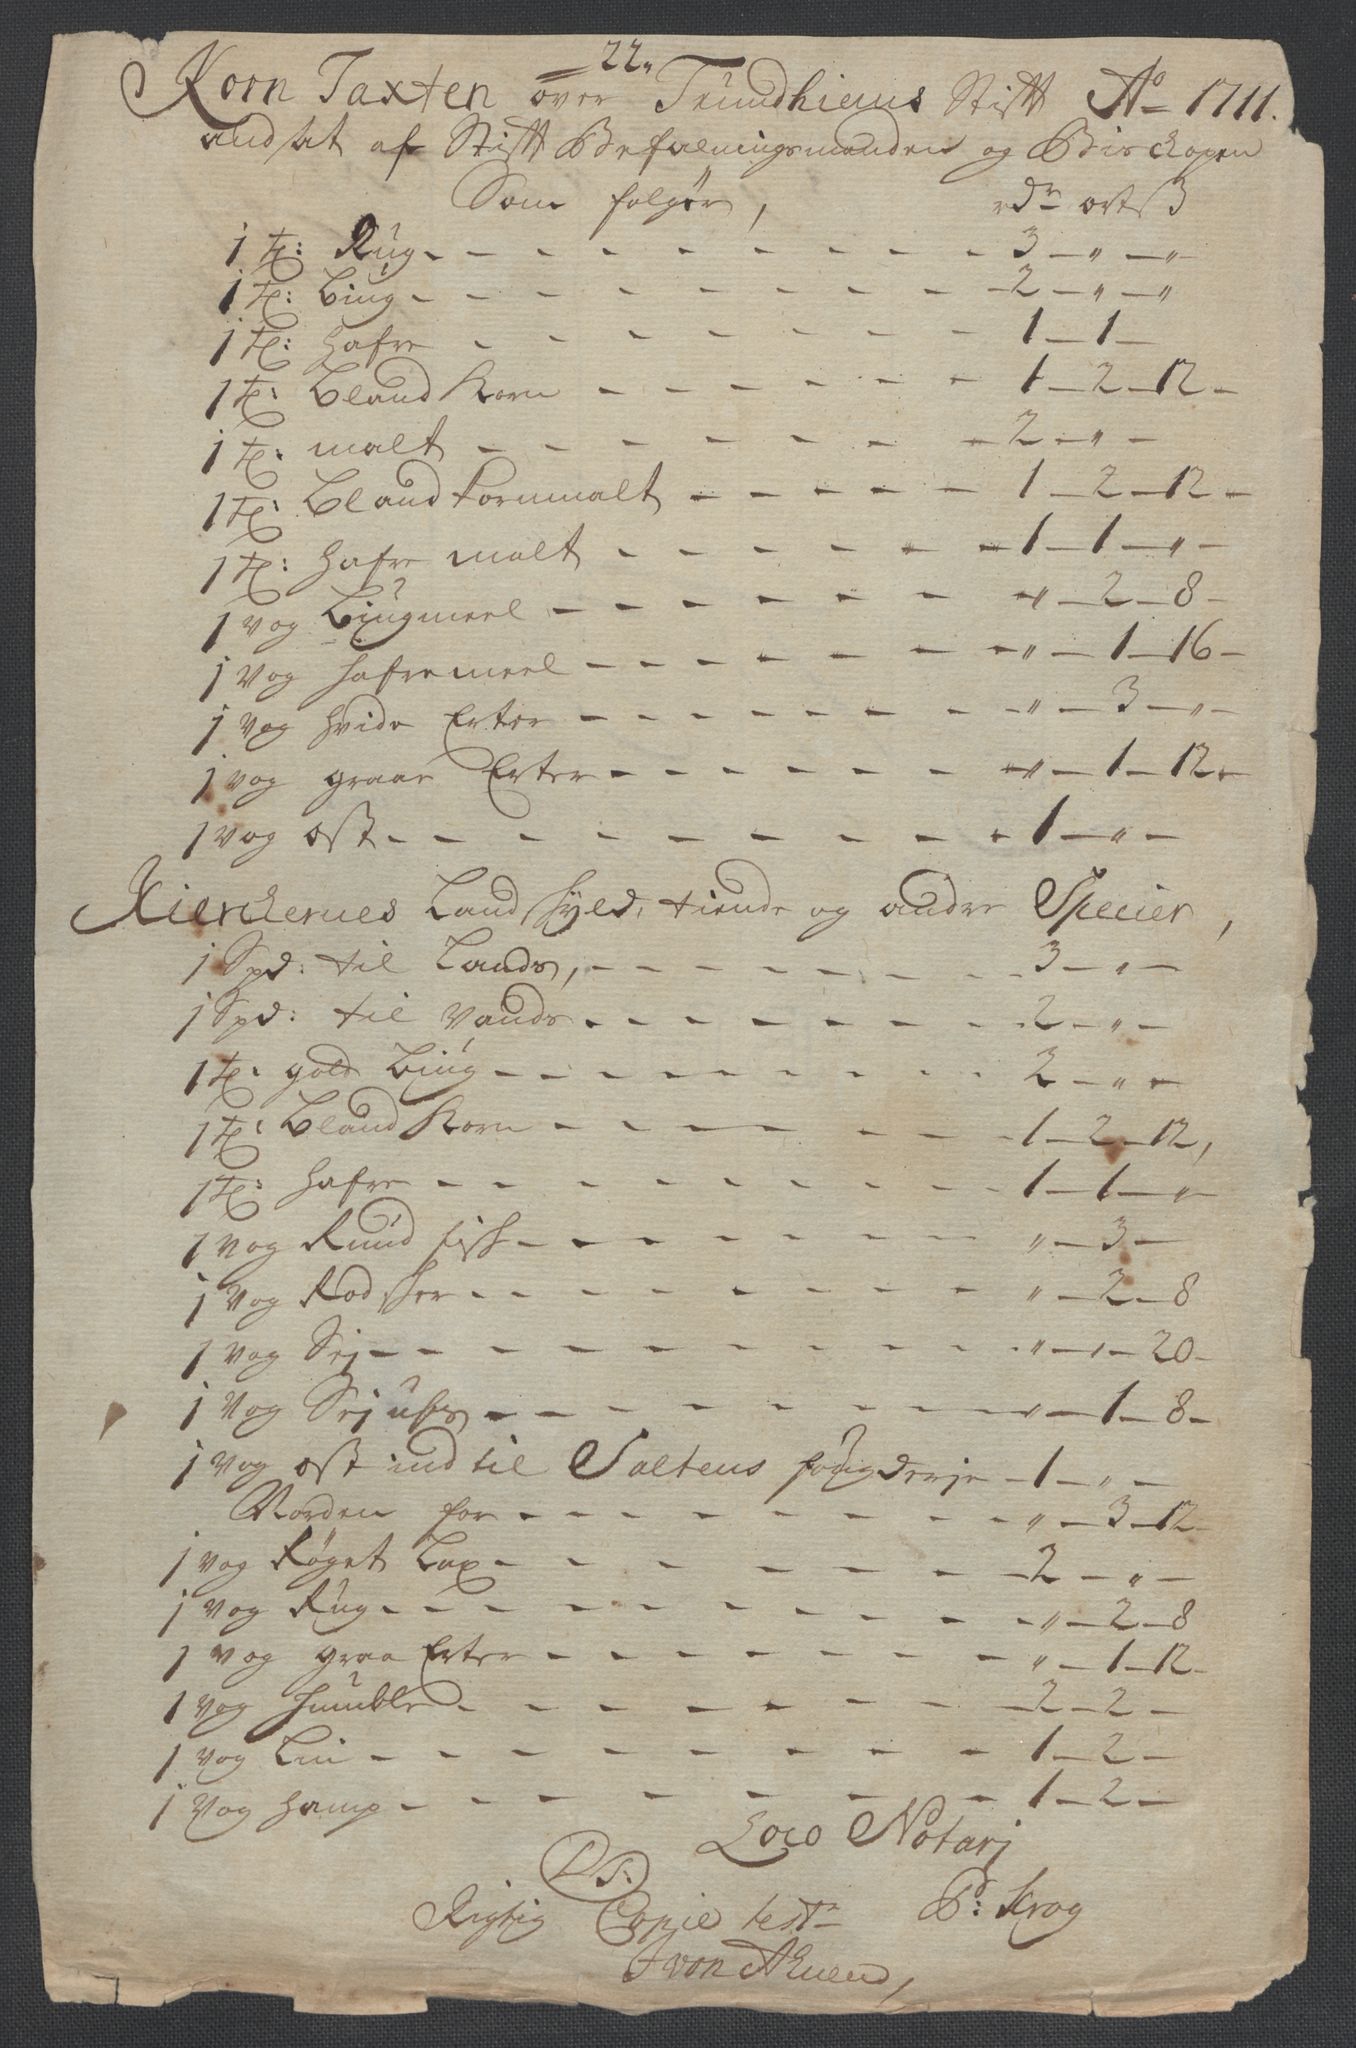 22,
Korn Taxten over Trundhiems Stift Ao 1711.
andsat af Stift Befalningsmanden og Bischopen
Som følger, rdr ort ß
1 Tø: Rug - 3 - " - "
1 Tø: Biug - 2 - " - "
1 Tø: Hafre - 1 - 1 -
1 Tø: Bland Korn - 1 - 2 - 12 -
1 Tø: malt - 2 - " -
1 Tø: Bland kornmalt - 1 - 2 - 12 -
1 Tø: Hafre malt - 1 - 1 - " -
1 vog Biugmeel - " - 2 - 8 -
1 vog Hafremeel - " - 1 - 16 -
1 vog hvide Erter - " - 3 - " -
1 vog graae Erter - " - 1 - 12 -
1 vog ost - 1 - " -
Kierckernes Landskyld, tiende og andre Specier,
1 Spd: til Lands, - 3 - " -
1 Spd: til Vands - 2 - " -
1 Tø: gold Biug - 2 - " -
1 Tø: Bland Korn - 1 - 2 - 12,
1 Tø: Hafre - 1 - 1 - " -
1 vog Rund fisk - " - 3 -
1 vog Rodsker - " - 2 - 8
1 vog Sej - " - " - 20 -
1 vog Sejufs - " - 1 - 8 -
1 vog ost ind til Saltens fougderje - 1 - " -
Norden for - " - 3 - 12 -
1 vog Røget Lax - 2 - " -
1 vog Rug - " - 2 - 8
1 vog graa Erter - " - 1 - 12 -
1 vog Humble - 2 - 2 -
1 vog Lin - 1 - 2 -
1 vog Hamp - 1 - 2 -
Loco Notarj
L S. P: Krog
Rigtig Copie test
J von Ahnend,